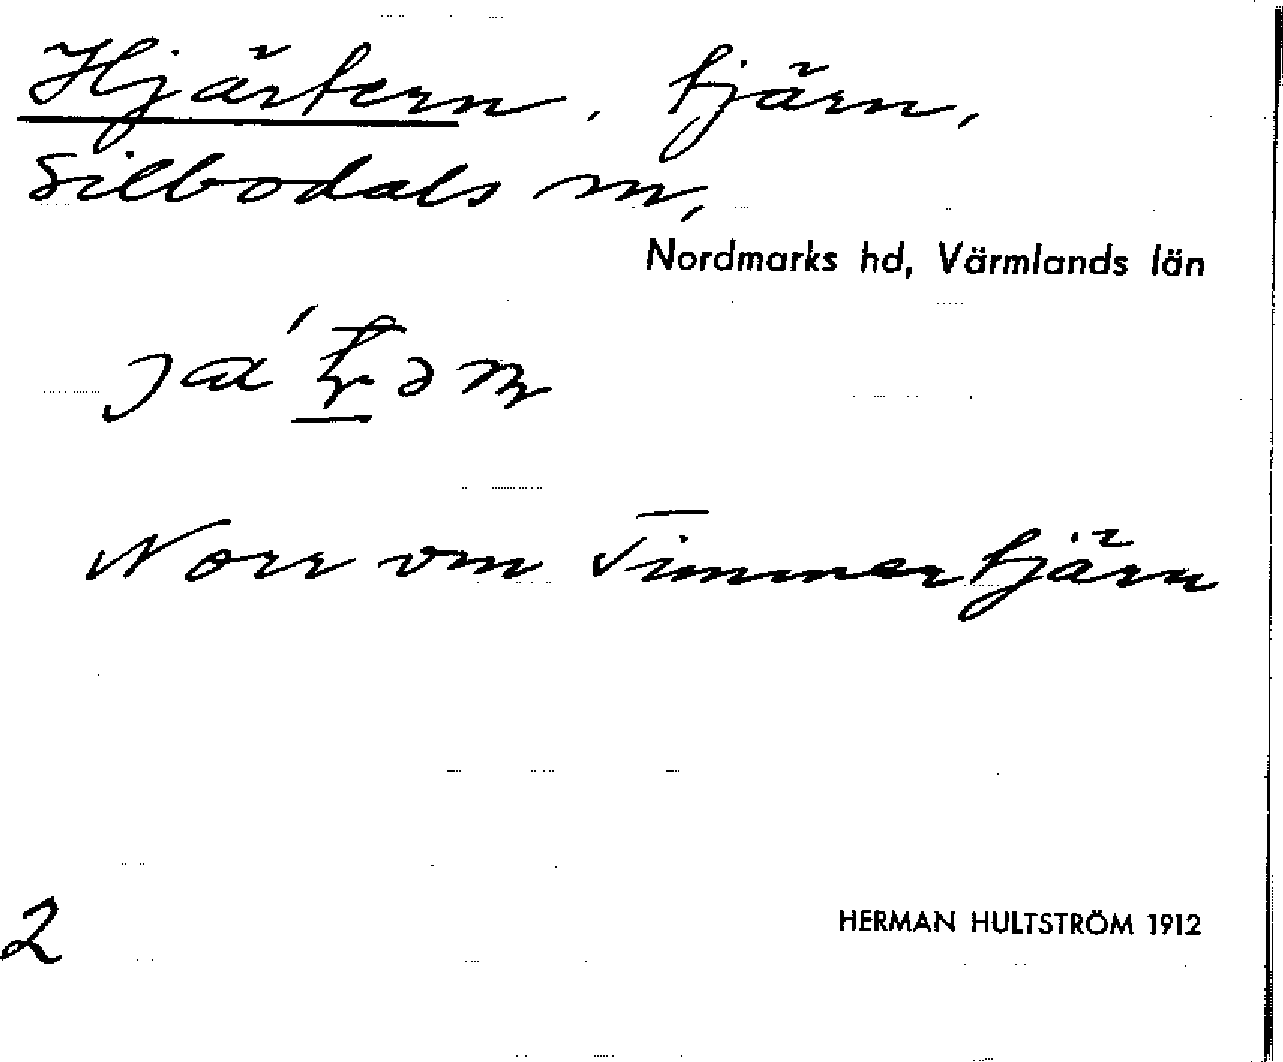 Hjärtern, tjärn,
Silbodals sn,
Nordmarks hd, Värmlands län
Norr om Timmertjärn
2
HERMAN HULTSTRÖM 1912